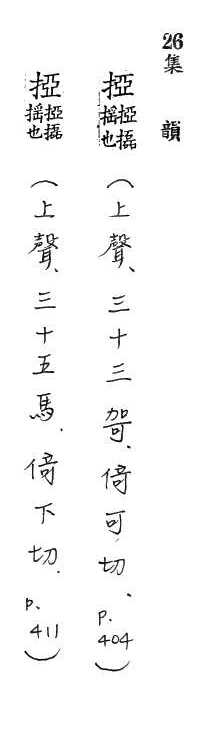 26集韻
掗掗搖搖也（上聲、三十三哿、倚可切、p.404）
掗掗搖搖也（上聲、三十五馬、倚下切、p.411）